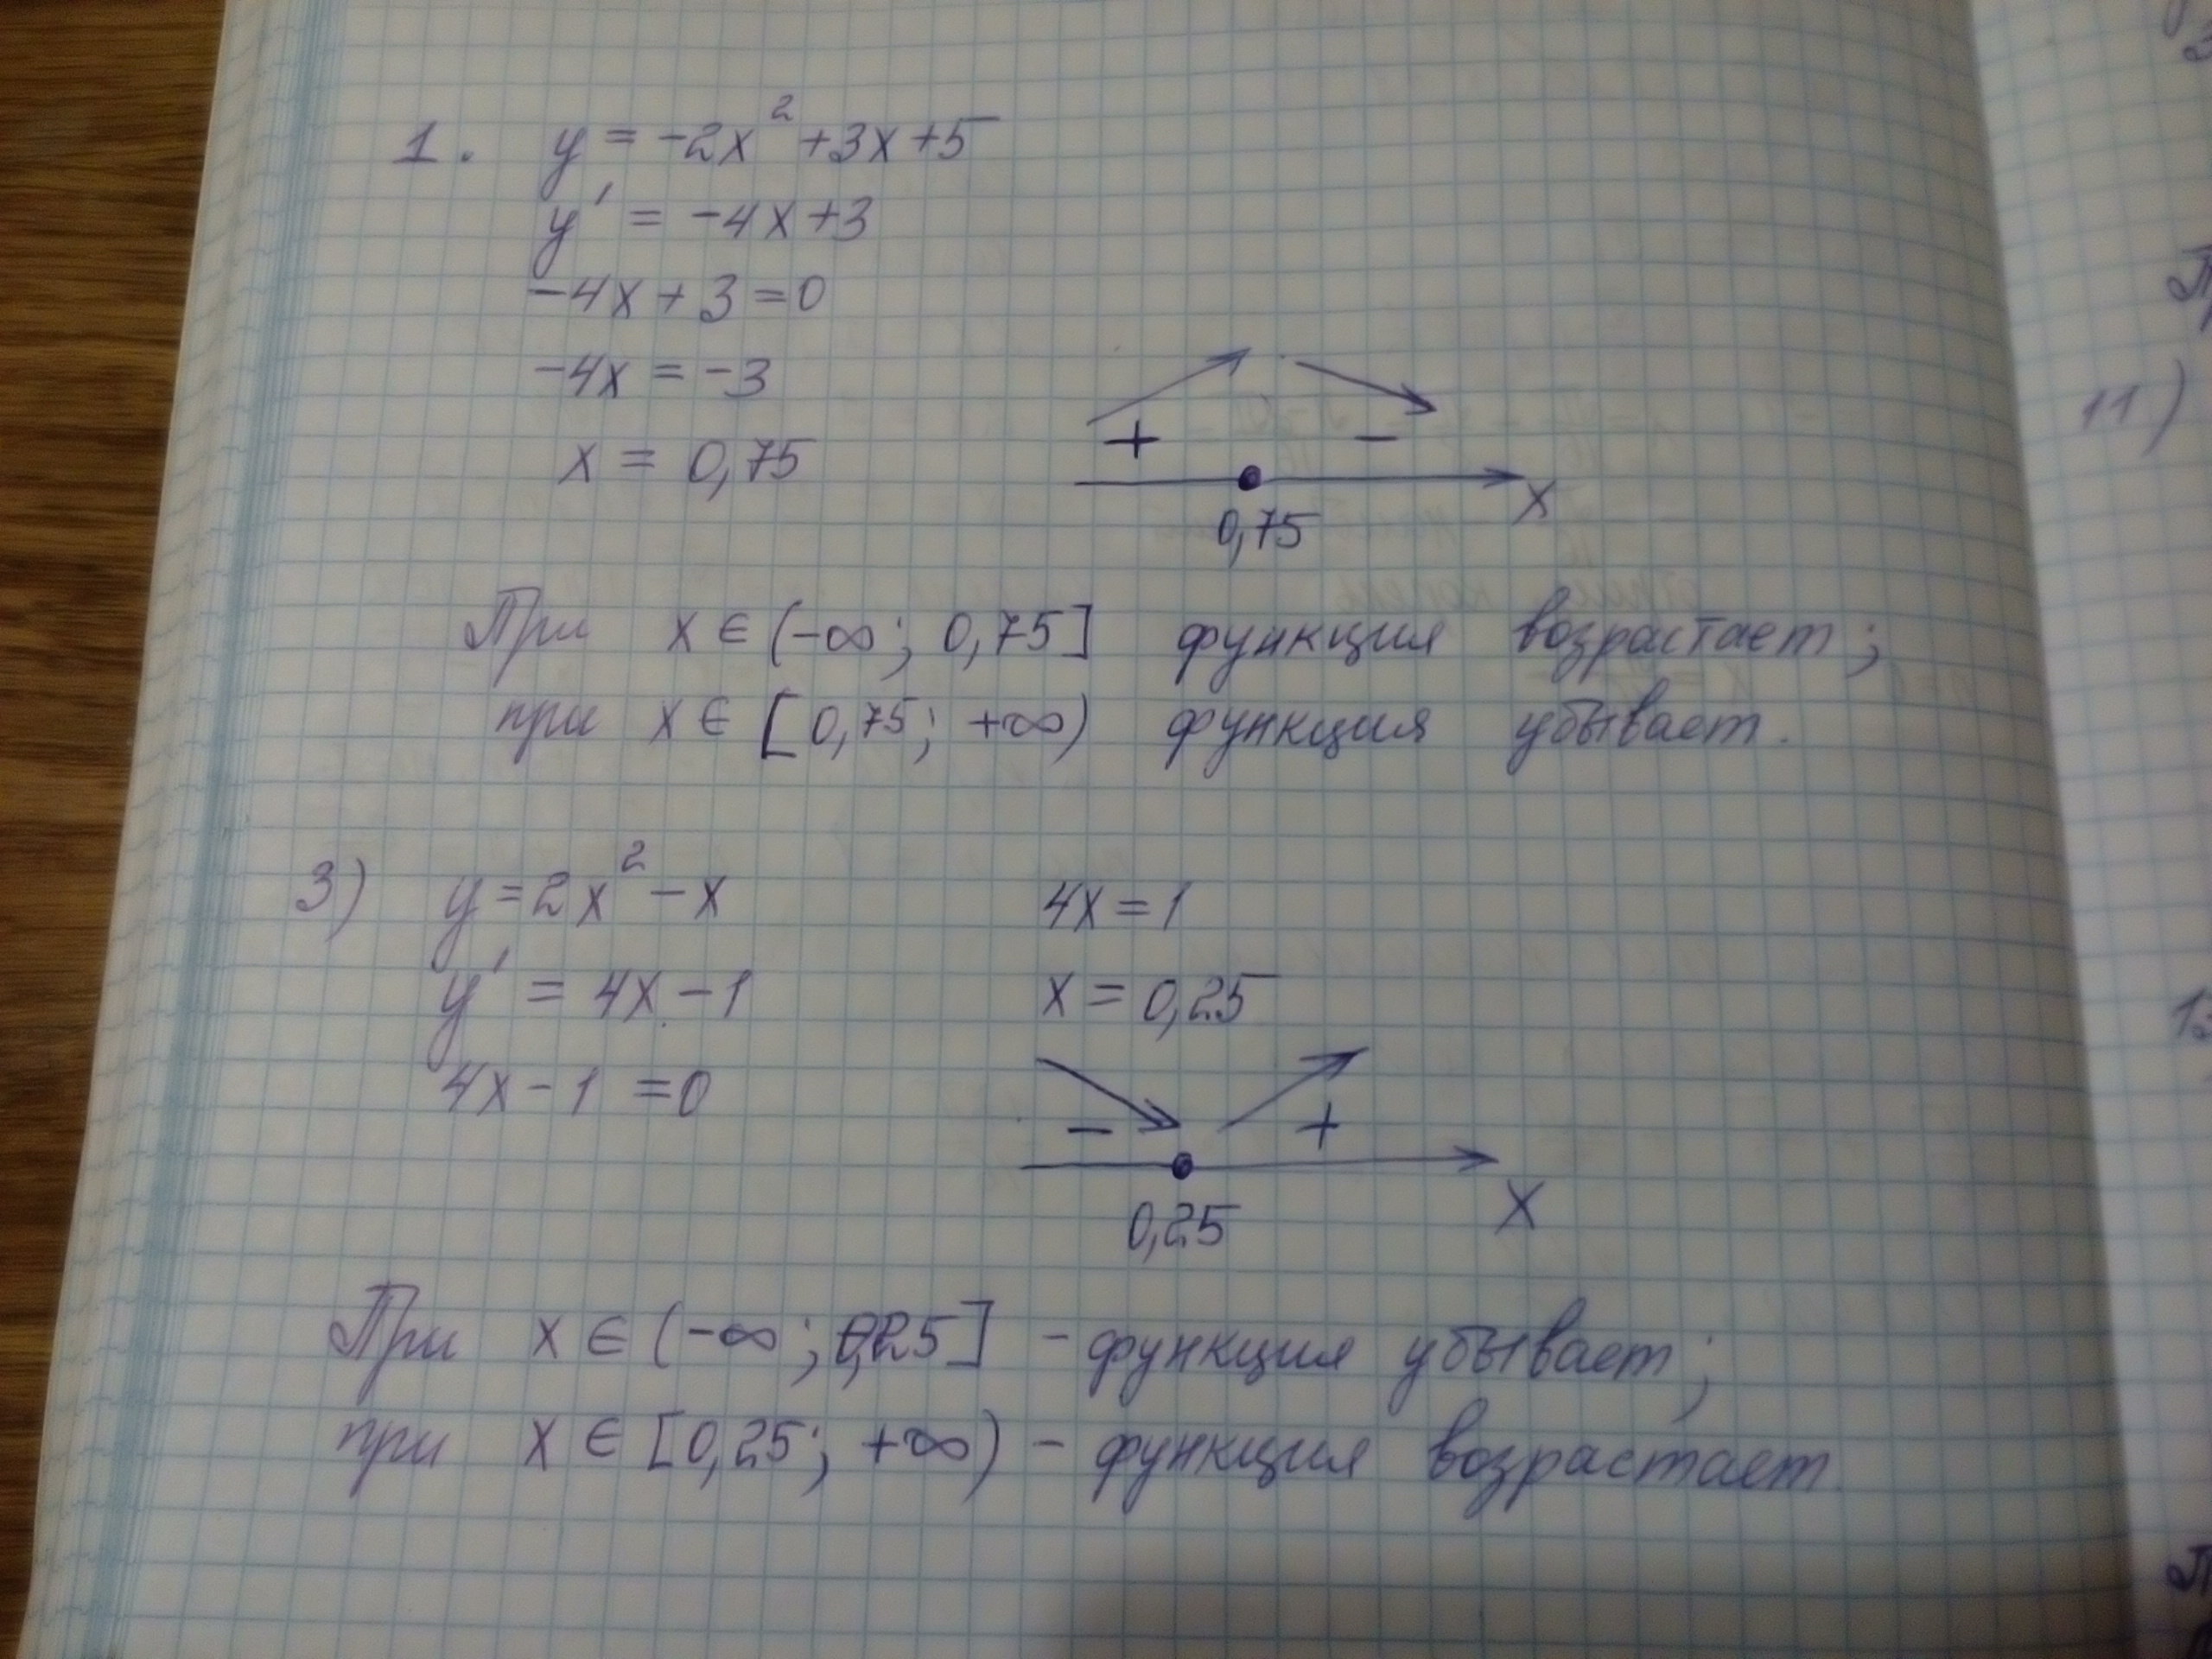 1. y = -2x² + 3x + 5
y' = -4x + 3
-4x + 3 = 0
-4x = -3
x = 0,75
+ -
0,75 x
При x ∈ (-∞; 0,75] функция возрастает;
при x ∈ [0,75; +∞) функция убывает.
3) y = 2x² - x
y' = 4x - 1
4x - 1 = 0
4x = 1
x = 0,25
- +
0,25 x
При x ∈ (-∞; 0,25] - функция убывает;
при x ∈ [0,25; +∞) - функция возрастает.
11)